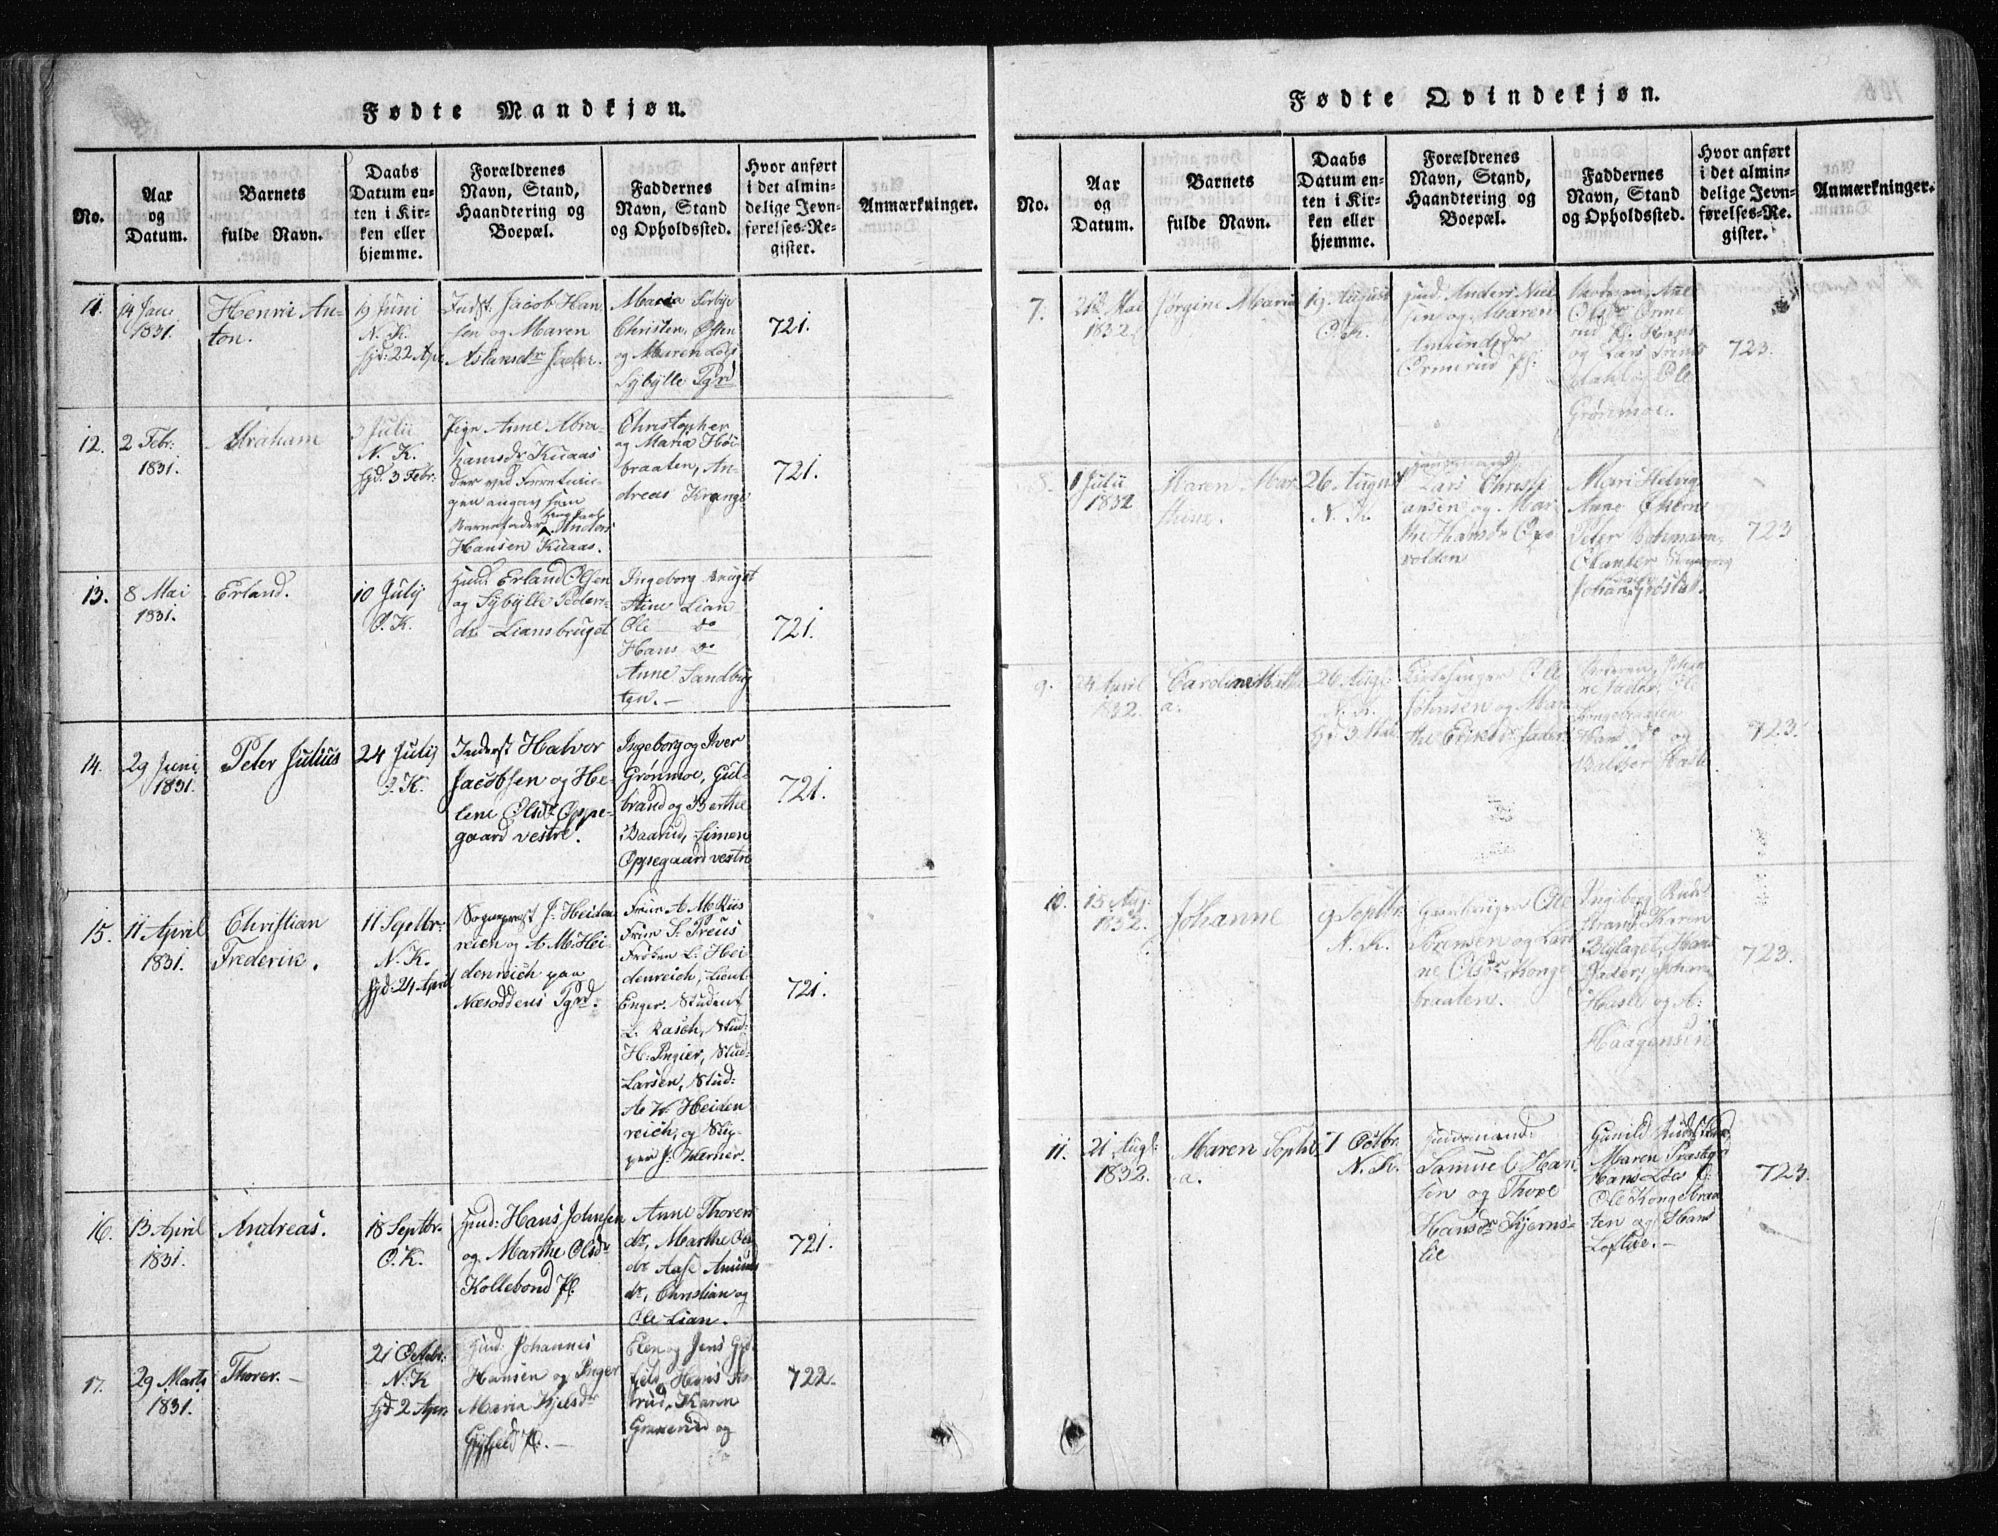 Fødte Mandkjøn.
No.
Aar
og
Datum.
Barnets
fulde Navn.
Daabs
Datum en-
ten i Kir-
ken eller
hjemme.
Forældrenes
Navn, Stand,
Haandtering og
Boepæl.
Faddernes
Navn, Stand
og Opholdssted.
Hvor anført
i det almin-
delige Jevn-
førelses-Re-
gister.
Anmærkninger.
11.
14 Jan
1831.
Henrik An-
ton.
19 Juni
N. K.
Hjd: 22 Apr.
Indst. Jacob Han-
sen og Maren
Aslansdr Jader.
Maria
Christen
og Maren Loes
Sybylle Pgrd
721.
12.
2 Febr:
1831.
Abraham
3 Julii
N. K.
Hjd. 3 Febr:
Pige Anne Abra-
hamsdr Kuaas
der ved
gen angav som
Barnefader Anders
Hansen Kuaas.
Christopher
og Maria Høi-
braaten, An-
dreas Krange
721.
13.
8 Mai
1831.
Erland.
10 July
O. K.
Huud: Erland Olsen
og Sybylle Peders-
dr Liansbruget
Ingeborg Bruget
Stine Lian
Ole do
Hans do
Anne Sandbug-
ten.—
721.
14.
29 Juni
1831.
Peter Julius
24 July
O. K.
Inderst Halvor
Jacobsen og He-
lene Olsdr Oppe-
gaard vestre.
Ingeborg og Iver
Grønmoe, Gul-
brand og Berthe
Baarud, Simen
Oppegaard vestre
721.
15.
11 April
1831.
Christian
Frederik.
11 Septbr.
N. K.
Hjd: 24 April
Sogneprest J: Heiden-
reich og A. M. Hei-
denreich paa
Næsoddens Pgrd.
Frue A. M. Riis
Frue S. Preus
Frøken L. Hei-
denreich, Lieut
Enger. Student
L. Rasch, Stud:
H: Ingier, Stud-
Larsen, Stud:
A. W. Heiden
reich, og Skip-
per J: Werner.
721.
16.
13 April
1831.
Andreas.
18 Septbr.
O. K.
Huud: Hans Johnsen
og Marthe Olsdr
Kollebond Pl.
Anne Thoren-
dr, Marthe Ols
dr Aase Amunds
dr, Christian og
Ole Lian.
721.
17.
29 Marts
1831.
Thorer.—
21 Octobr:
N. K
Hjd 2 Apr.
Huud: Johannes
Hansen og Inger
Maria Kjelsdr
Gjøfjeld Pl.—
Elen og Jens Gjø-
fjeld, Hans
Karen
Granerud og
722.
Fødte Qvindekjøn.
106
No.
Aar
og
Datum.
Barnets
fulde Navn.
Daabs
Datum en-
ten i Kir-
ken eller
hjemme.
Forældrenes
Navn, Stand,
Haandtering og
Boepæl.
Faddernes
Navn, Stand
og Opholdssted.
Hvor anført
i det almin-
delige Jevn-
førelses-Re-
gister.
Anmærkninger.
7.
21de Mai
1832.
Jørgine Maria
19 August
O. K.
Huud. Anders Niel-
sen og Maren
Amundsdr
Ormerud Pl.
Ane
Olsdr Orme
rud Pl. Hans
og Lars
dahl og Ole
Grønmoe.
723.
8.
1 Julii
1832
Maren Mar
thine.
26 August
N. K.
Huusmand
Lars Christi
ansen og Mar-
the Hansdr
volden
Mari Helvig
Anne
Peter Bohmann
Johan
723
9.
24 April
1832.
Caroline Math
a.
26 Aug:
N. K.
Hjd 3 Mai
Ole
Johnsen og Mar
the Eriksdr Jader
ne Jader, Ole
Kongebraaten
Hans do og
Balzer Hasle
723.
10.
15 Aug:
1832.
Johanne
9 Septbr.
N. K.
Ole
Sørensen og Lar
ne Olsdr Konge
braaten.
Ingeborg Rud
strand, Karen
Blylaget, Hans
Jader, Johan
Hasle og A:
Haagensen
723.
11.
21 Aug:
1832.
Maren Sophi
a.
7 Octbr.
N. K.
Huusmand
Samuel Han
sen og Thore
Hansdr Hjerns-
lie
Gunild Rudstrand
Maren Præstegd
Hans Loes
Ole Kongebraa
ten og Hans
Loftue.—
723.